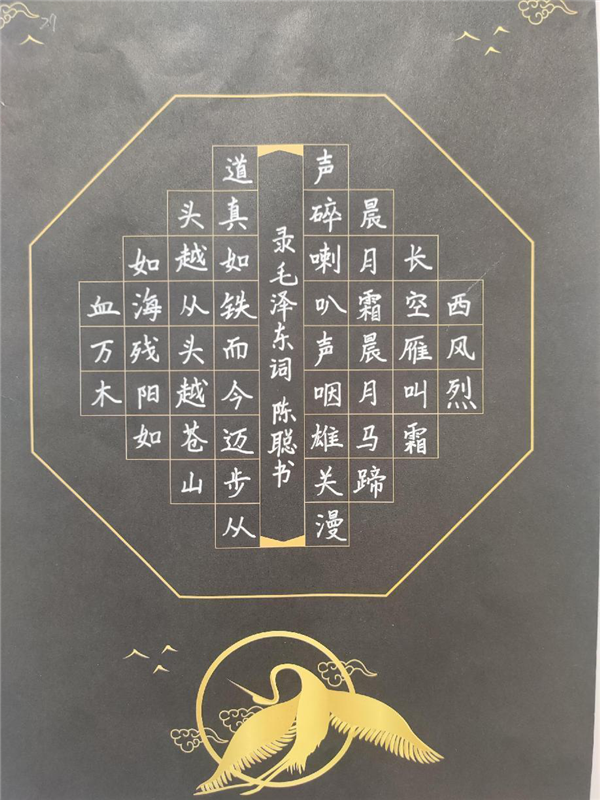 西风烈
长空雁叫霜
晨月霜晨月马蹄
声碎喇叭声咽雄关漫
录毛泽东词 陈聪书
道真如铁而今迈步从
头越从头越苍山
如海残阳如
血万木